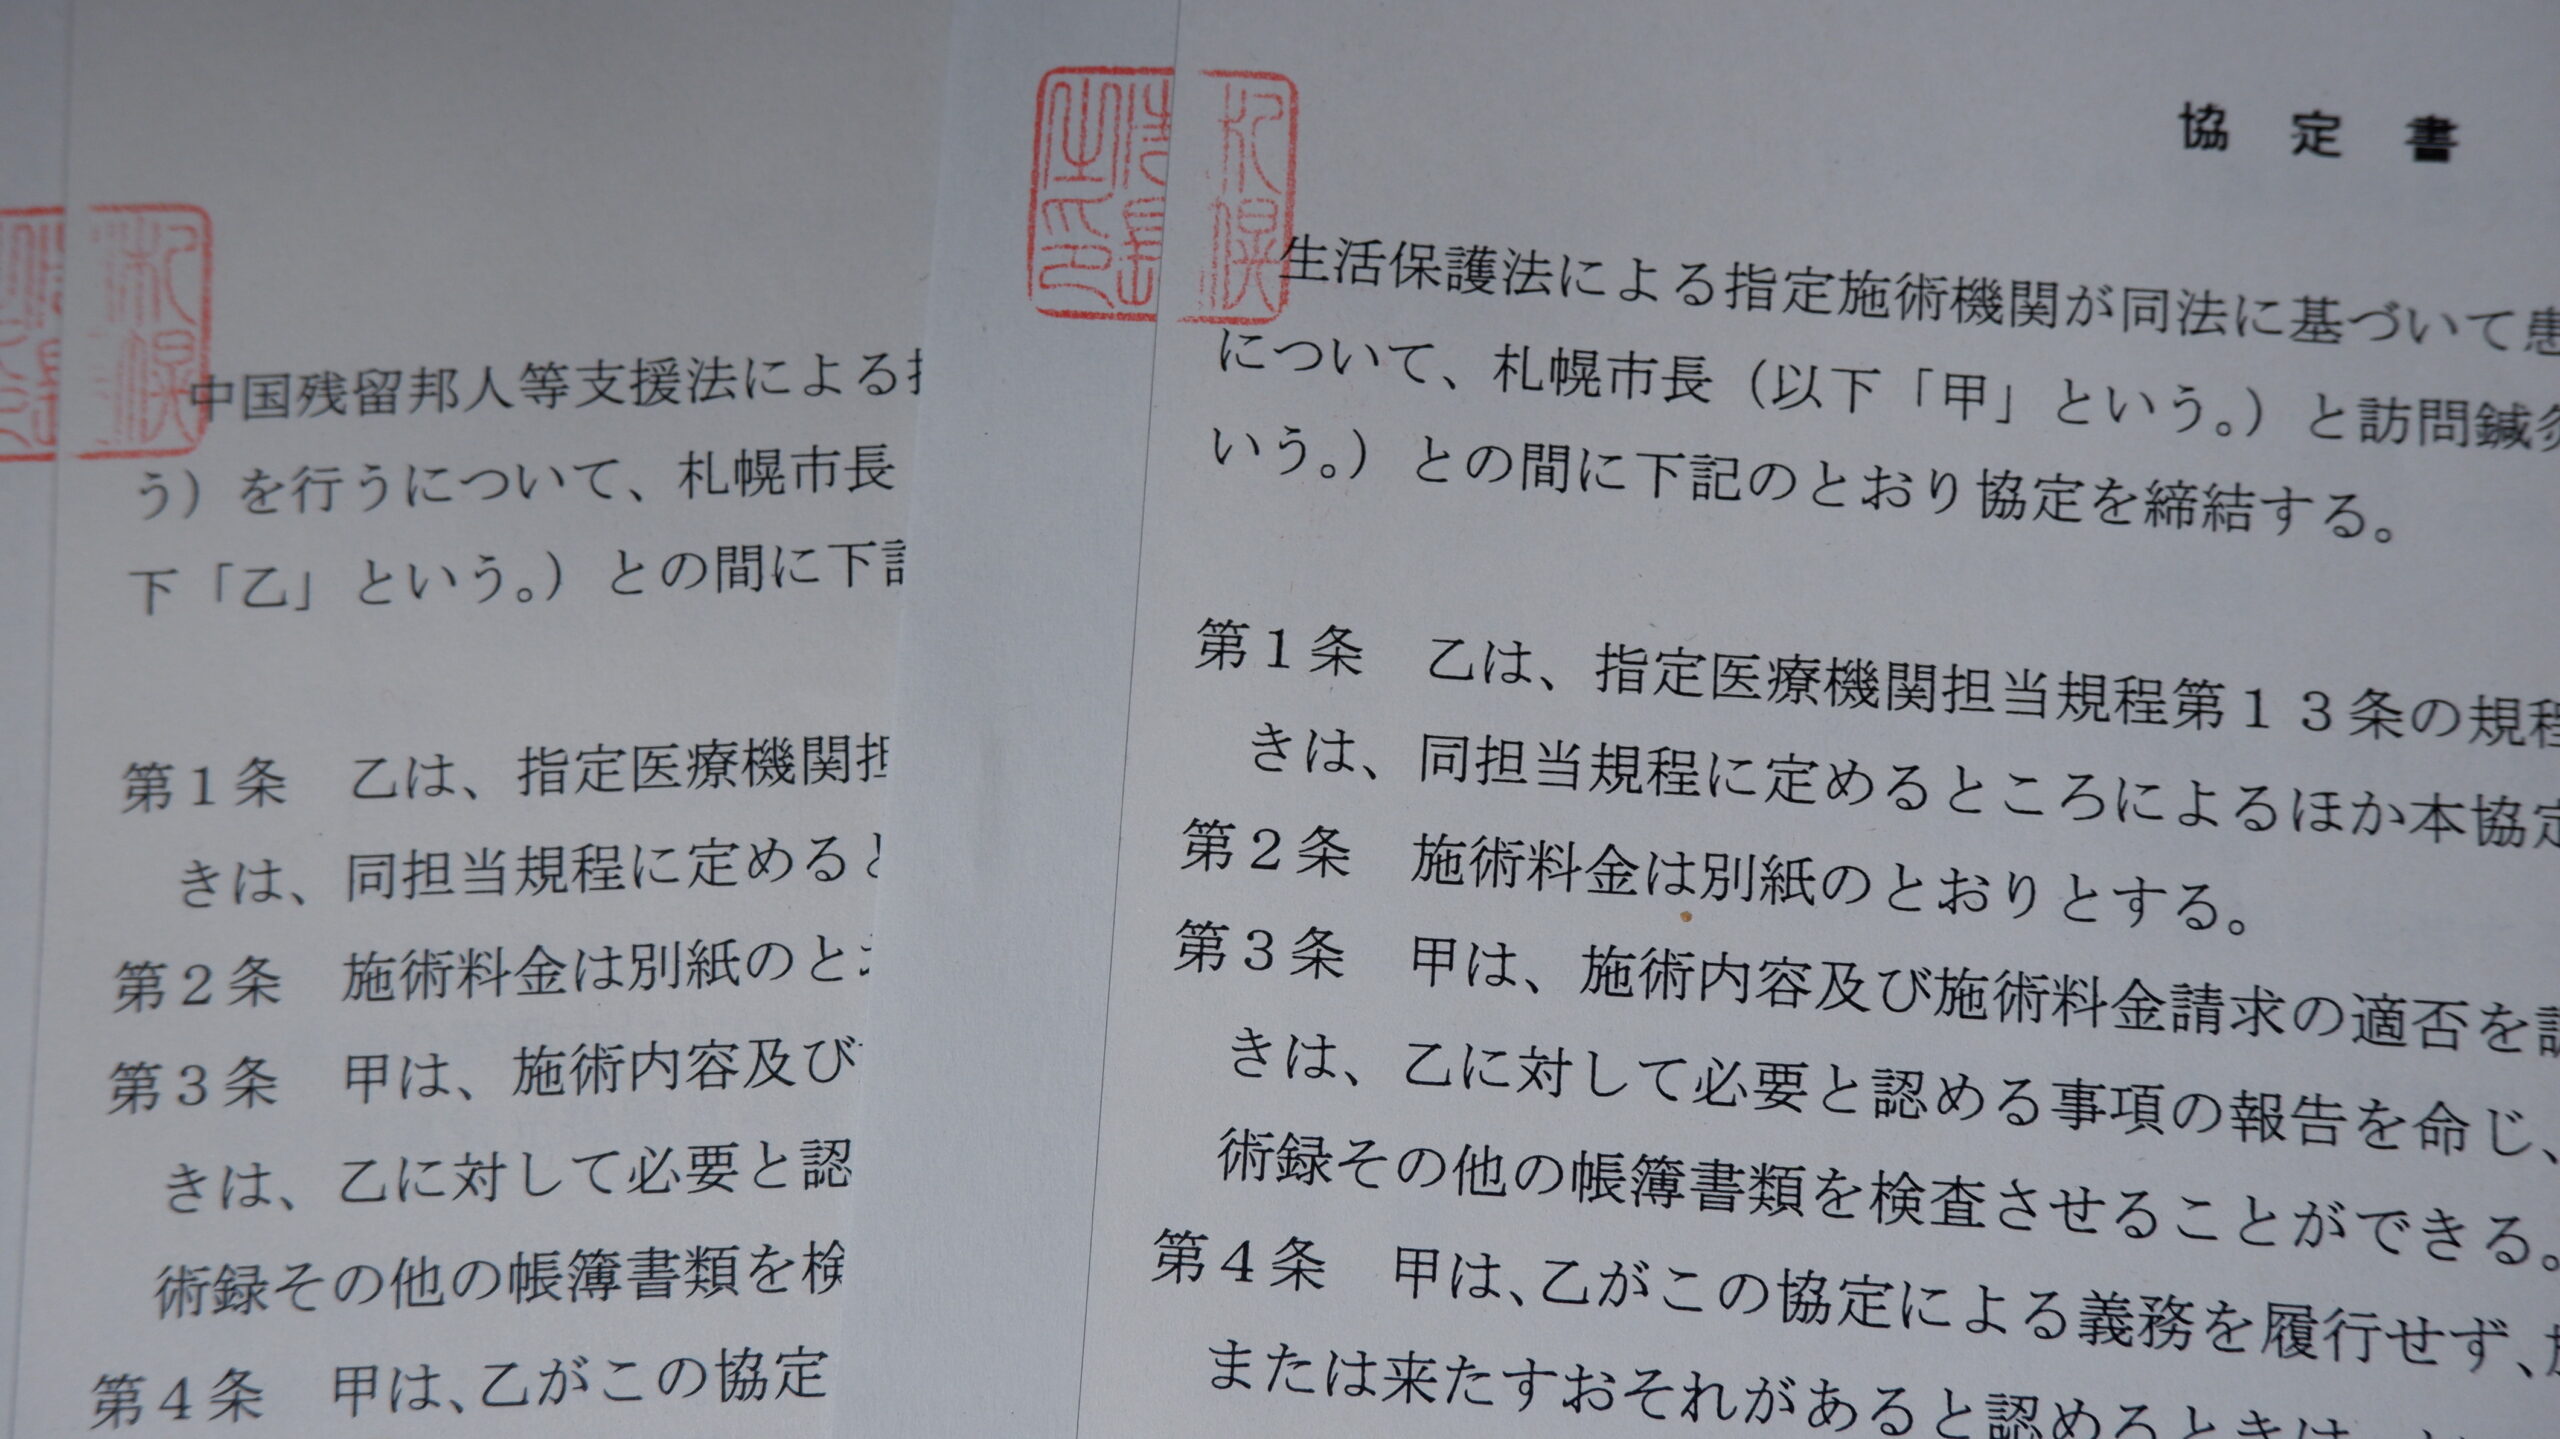 中国残留邦人等支援法による
う）を行うについて、札幌市長
下「乙」という。）との間に下記
第１条　乙は、指定医療機関担
きは、同担当規程に定めると
第２条　施術料金は別紙のとお
第３条　甲は、施術内容及び
きは、乙に対して必要と認
術録その他の帳簿書類を検
第４条　甲は、乙がこの協定
協　定　書
生活保護法による指定施術機関が同法に基づいて患
について、札幌市長（以下「甲」という。）と訪問鍼灸
いう。）との間に下記のとおり協定を締結する。
第１条　乙は、指定医療機関担当規程第１３条の規程
きは、同担当規程に定めるところによるほか本協定
第２条　施術料金は別紙のとおりとする。
第３条　甲は、施術内容及び施術料金請求の適否を調
きは、乙に対して必要と認める事項の報告を命じ、
術録その他の帳簿書類を検査させることができる。
第４条　甲は、乙がこの協定による義務を履行せず、
または来たすおそれがあると認めるときは、
札幌
市長
之印
札幌